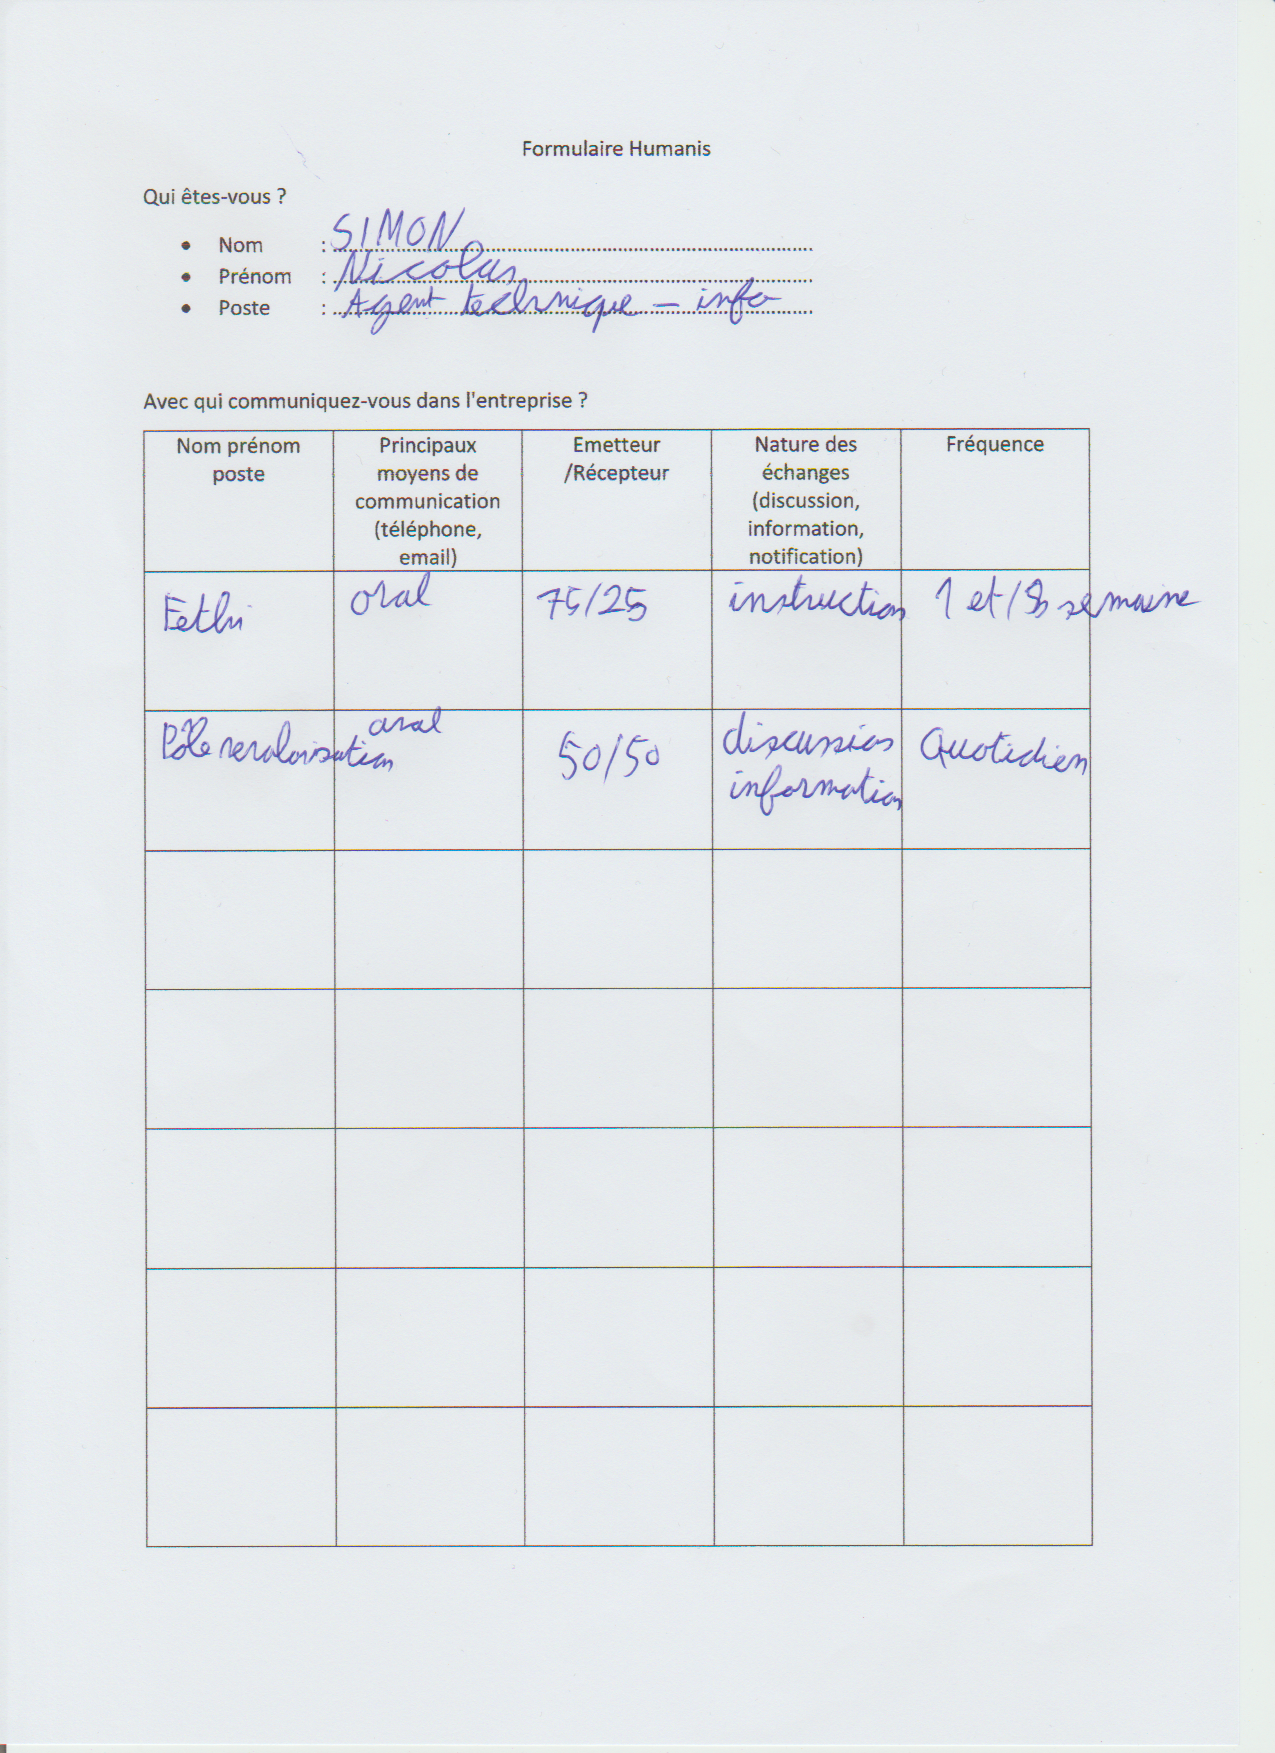 Formulaire Humanis
Qui êtes-vous ?
• Nom : SIMON
• Prénom : Nicolas
• Poste : Agent technique - info
Avec qui communiquez-vous dans l'entreprise ?
Nom prénom
poste
Principaux
moyens de
communication
(téléphone,
email)
Emetteur
/Récepteur
Nature des
échanges
(discussion,
information,
notification)
Fréquence
Fethi
oral
75/25
instruction
1 et / semaine
Pôle revalorisation
oral
50/50
discussion
information
Quotidien